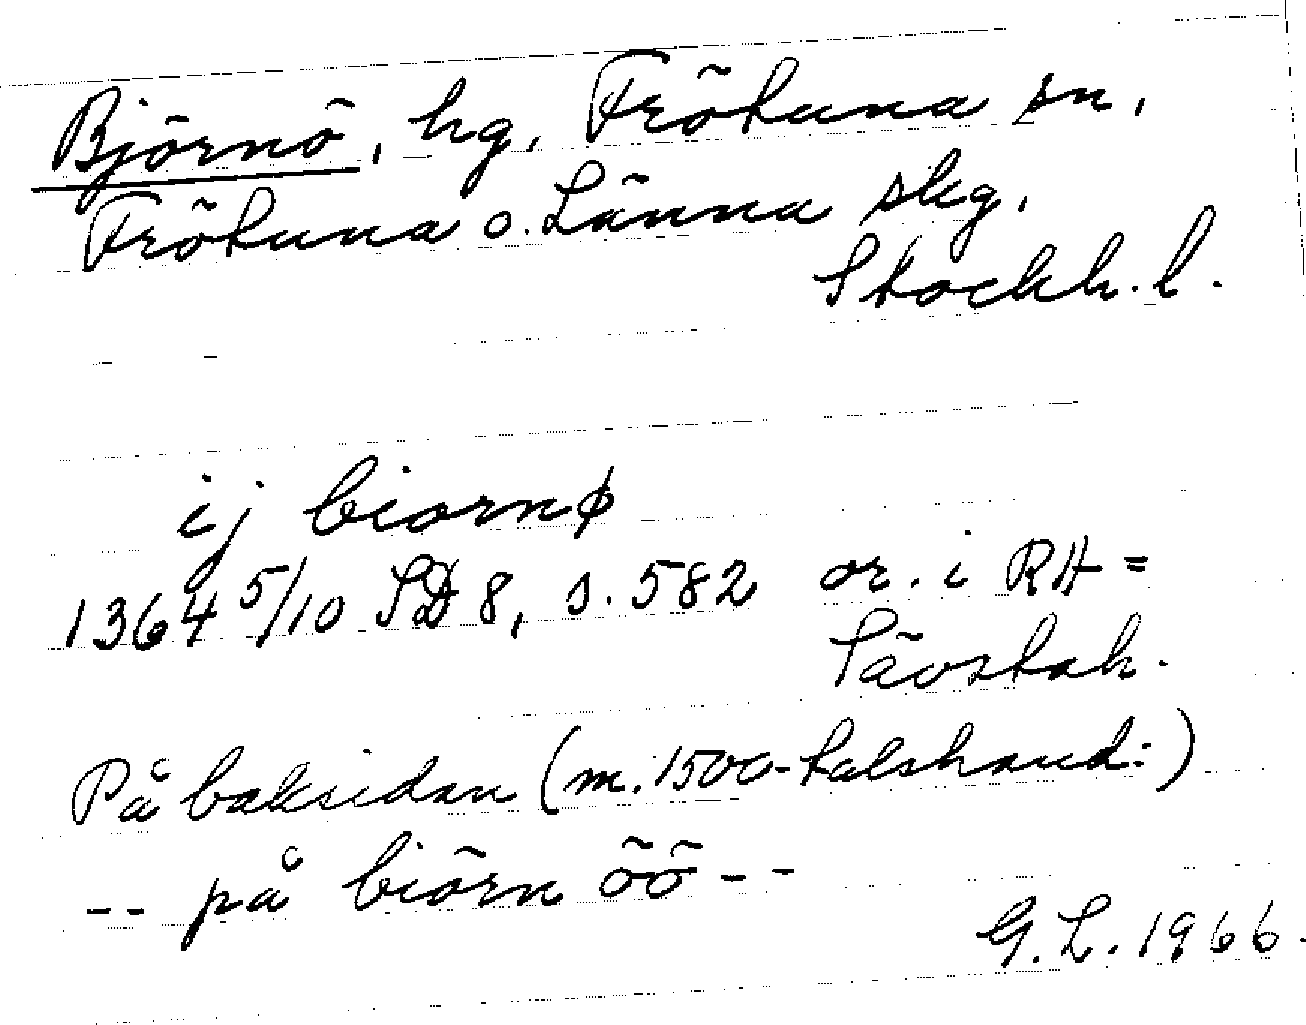 Björnö, hg, Frötuna sn,
Frötuna o. Länna skg,
Stockh. l.
ij biornø
1364 5/10 SD 8, s. 582 or. i RA =
Sävstah.
På baksidan (m. 1500-talshand:)
-- på biörn öö --
G. L. 1966.